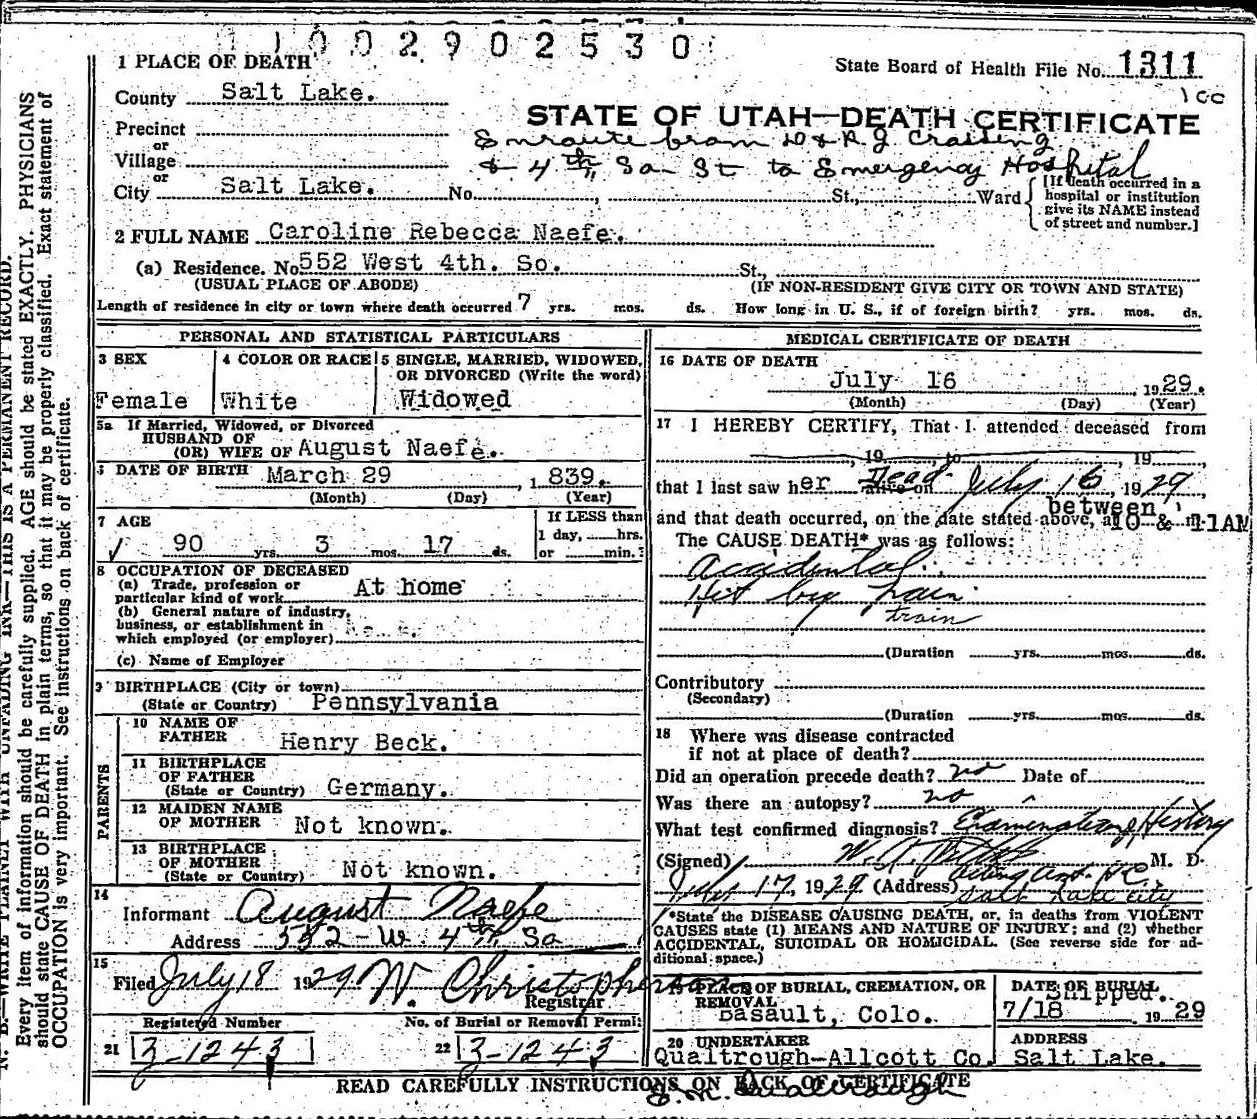 1002902530
1 PLACE OF DEATH
State Board of Health File No. 1311
100
County Salt Lake.
STATE OF UTAH—DEATH CERTIFICATE
Precinct
Enroute from D & R G Crossing
or
Village
& 4th So St to Emergency Hospital
or
City Salt Lake. No. , St., Ward
[If death occurred in a
hospital or institution
give its NAME instead
of street and number.]
2 FULL NAME Caroline Rebecca Naefe.
(a) Residence. No 552 West 4th. So. St.,
(USUAL PLACE OF ABODE) (IF NON-RESIDENT GIVE CITY OR TOWN AND STATE)
Length of residence in city or town where death occurred 7 yrs. mos. ds. How long in U. S., if of foreign birth? yrs. mos. ds.
PERSONAL AND STATISTICAL PARTICULARS
3 SEX
Female
4 COLOR OR RACE
White
5 SINGLE, MARRIED, WIDOWED,
OR DIVORCED (Write the word)
Widowed
5a If Married, Widowed, or Divorced
HUSBAND OF
(OR) WIFE OF August Naefe.
6 DATE OF BIRTH March 29 , 1839.
(Month) (Day) (Year)
7 AGE
90 yrs. 3 mos. 17 ds.
If LESS than
1 day, hrs.
or min.?
8 OCCUPATION OF DECEASED
(a) Trade, profession or
particular kind of work At home
(b) General nature of industry,
business, or establishment in
which employed (or employer)
(c) Name of Employer
9 BIRTHPLACE (City or town)
(State or Country) Pennsylvania
PARENTS
10 NAME OF
FATHER Henry Beck.
11 BIRTHPLACE
OF FATHER
(State or Country) Germany.
12 MAIDEN NAME
OF MOTHER Not known.
13 BIRTHPLACE
OF MOTHER
(State or Country) Not known.
14
Informant August Naefe
Address 552-W. 4th So
15
Filed July 18 1929 W. Christopherson
Registrar
Registered Number No. of Burial or Removal Permit
21 3-1243 22 3-1243
MEDICAL CERTIFICATE OF DEATH
16 DATE OF DEATH
July 16 , 1929.
(Month) (Day) (Year)
17 I HEREBY CERTIFY, That I attended deceased from
, 19 , to , 19
that I last saw her alive on Dead July 16, 1929
between
and that death occurred, on the date stated above, at 10 & 11AM
The CAUSE DEATH* was as follows:
Accidental
Hit by train
train
(Duration yrs. mos. ds.
Contributory
(Secondary)
(Duration yrs. mos. ds.
18 Where was disease contracted
if not at place of death?
Did an operation precede death? no Date of
Was there an autopsy? no
What test confirmed diagnosis? Examination & History
(Signed) M. D.
July 17, 1929 (Address) Salt Lake City
*State the DISEASE CAUSING DEATH, or, in deaths from VIOLENT
CAUSES state (1) MEANS AND NATURE OF INJURY; and (2) whether
ACCIDENTAL, SUICIDAL OR HOMICIDAL. (See reverse side for ad-
ditional space.)
19 PLACE OF BURIAL, CREMATION, OR
REMOVAL
Basault, Colo.
DATE OF BURIAL
Shipped.
7/18 1929
20 UNDERTAKER
Qualtrough-Allcott Co.
ADDRESS
Salt Lake.
READ CAREFULLY INSTRUCTIONS ON BACK OF CERTIFICATE
Qualtrough
N. B.—WRITE PLAINLY WITH UNFADING INK—THIS IS A PERMANENT RECORD.
Every item of information should be carefully supplied. AGE should be stated EXACTLY. PHYSICIANS
should state CAUSE OF DEATH in plain terms, so that it may be properly classified. Exact statement of
OCCUPATION is very important. See instructions on back of certificate.